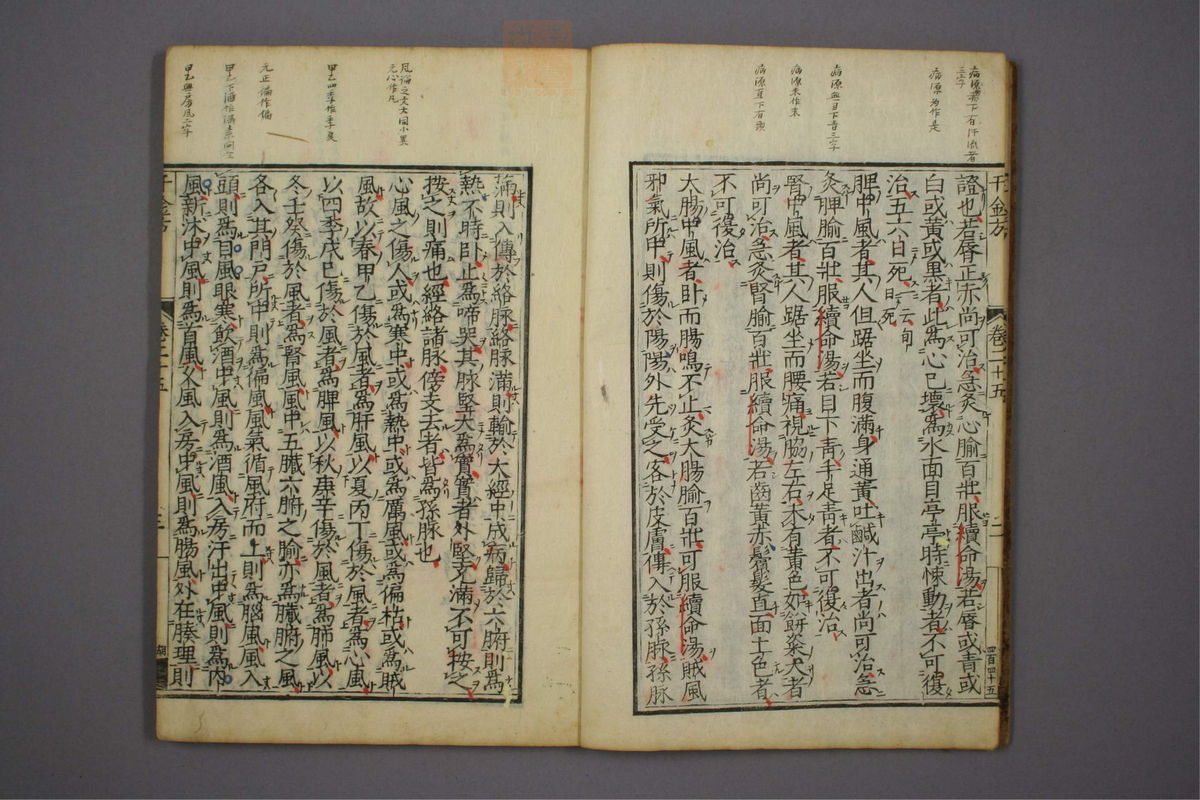 病源為作是
病源目下有
病源未作来
甲乙四季作季夏
千金方
卷二十五
二
四百四十五
證也若脣正赤尚可治急灸心腧百壯服續命湯若脣或青或
白或黃或黑者此為心已壞為水面目亭亭時悚動者不可復
治五六日死一云旬日死
脾中風者其人但踞坐而腹滿身通黃吐鹹汁出者尚可治急
灸脾腧百壯服續命湯若目下青手足青者不可復治
腎中風者其人踞坐而腰痛視脇左右未有黃色如餅粢大者
尚可治急灸腎腧百壯服續命湯若齒黃赤鬢髮直面土色者
不可復治
大腸中風者臥而腸鳴不止灸大腸腧百壯可服續命湯賊風
邪氣所中則傷於陽陽外先受之客於皮膚傳入於孫脉孫脉
滿則入傳於絡脉絡脉滿則輸於大經中成病歸於六腑則為
熱不時臥止為啼哭其脉堅大為實實者外堅充滿不可按之
按之則痛也經絡諸脉傍支去者皆為孫脉也
心風之傷人或為寒中或為熱中或為厲風或為偏枯或為賊
風故以春甲乙傷於風者為肝風以夏丙丁傷於風者為心風
以四季戊己傷於風者為脾風以秋庚辛傷於風者為肺風以
冬壬癸傷於風者為腎風風中五臟六腑之腧亦為臟腑之風
各入其門戶所中則為偏風風氣循風府而上則為腦風風入
頭則為目風眼寒飲酒中風則為酒風入房汗出中風則為內
風新沐中風則為首風久風入房中風則為腸風外在腠理則
卷二十五
三